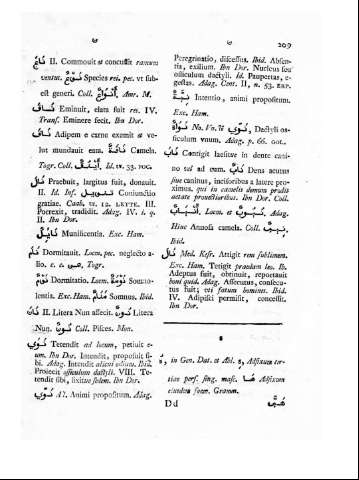 209
II. Commouit et concussit ramum
ventus. نَوْعٌ Species rei. pec. vt sub-
est generi. Coll. أَنْوَاعٌ Amr. M.
نَافَ Eminuit, elata fuit res. IV.
Transf. Eminere fecit. Ibn Dor.
Adipem e carne exemit et ve-
lut mundauit eam. نَاقَةٌ Camela.
Togr. Coll. أَيْنُقٌ Id. ix. 33. roc.
نَالَ Praebuit, largitus fuit, donauit.
II. Id. Inf. تَنْوِيلٌ Coniunctio
gratiae. Caab. ix. 12. LETTE. III.
Porrexit, tradidit. Adag. IV. i. q.
II. Ibn Dor.
Munificentia. Exc. Ham.
نَامَ Dormitauit. Locm. pec. neglecto a-
lio. c. c. عن Togr.
نَوْمٌ Dormitatio. Locm. نَوْمَةٌ Somno-
lentia. Exc. Ham. مَنَامٌ Somnus. Ibid.
II. Litera Nun affecit. نُونٌ Litera
Nun. نُونٌ Coll. Pisces. Mon.
نَوَى Tetendit ad locum, petiuit e-
um. Ibn Dor. Intendit, proposuit si-
bi. Adag. Intendit alicui ossium. Ibid.
Proiecit ossiculum dactyli. VIII. Te-
tendit sibi, fixitus solem. Ibn Dor.
نَوًى Animi propositum. Adag.
Peregrinatio, discessus. Ibid. Absen-
tia, exilium. Ibn Dor. Nucleus seu
ossiculum dactyli. Id. Paupertas, e-
gestas. Adag. Cent. II, n. 53. ear.
نِيَّةٌ Intentio, animi propositum.
Exc. Ham.
نَوَاةٌ No. Vn. τοῦ نَوًى, Dactyli os-
siculum vnum. Adag. p. 66. not.
نَابَ Contigit laesitue in dente cani-
no سن ad eum. نَابٌ Dens acutus
siue caninus, incisoribus a latere pro-
ximus, qui in camelis demum prodit
aetate prouectioribus. Ibn Dor. Coll.
أَنْيَابٌ Locm. et نُيُوبٌ Adag.
Hinc Annosa camela. Coll. نِيبٌ
Ibid.
نَالَ Med. Kesr. Attigit rem sublimem.
Exc. Ham. Tetigit praedam leo. Ib.
Adeptus fuit, obtinuit, reportauit
boni quid. Adag. Assecutus, consecu-
tus fuit; vti fatum hominem. Ibid.
IV. Adipisci permisit, concessit.
Ibn Dor.
in Gen. Dat. et Abl. Adfixum ter-
tiae pers. sing. masc. هَا Adfixum
eiusdem foem. Gramm.
Dd